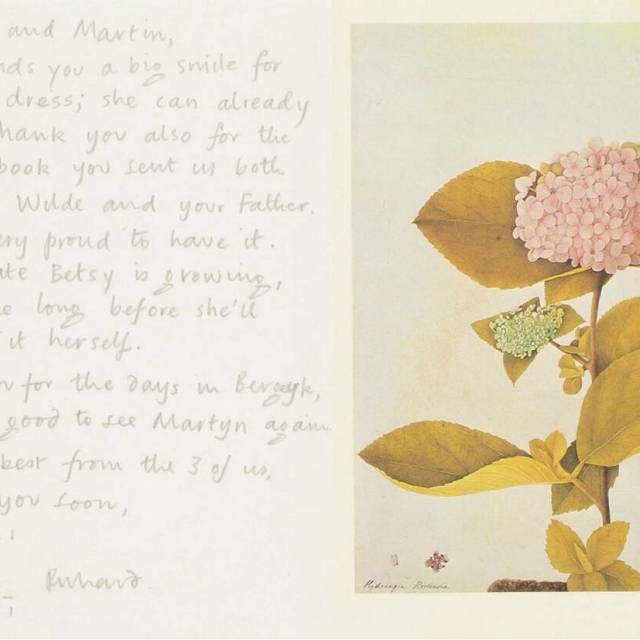 and Martin,
nds you a big smile for
dress; she can already
hank you also for the
book you sent us both
Wilde and your Father.
ery proud to have it.
ate Betsy is growing,
e long before she'll
it herself.
for the days in
good to see Martyn again
best from the 3 of us,
you soon,
Richard.
Hydrangea